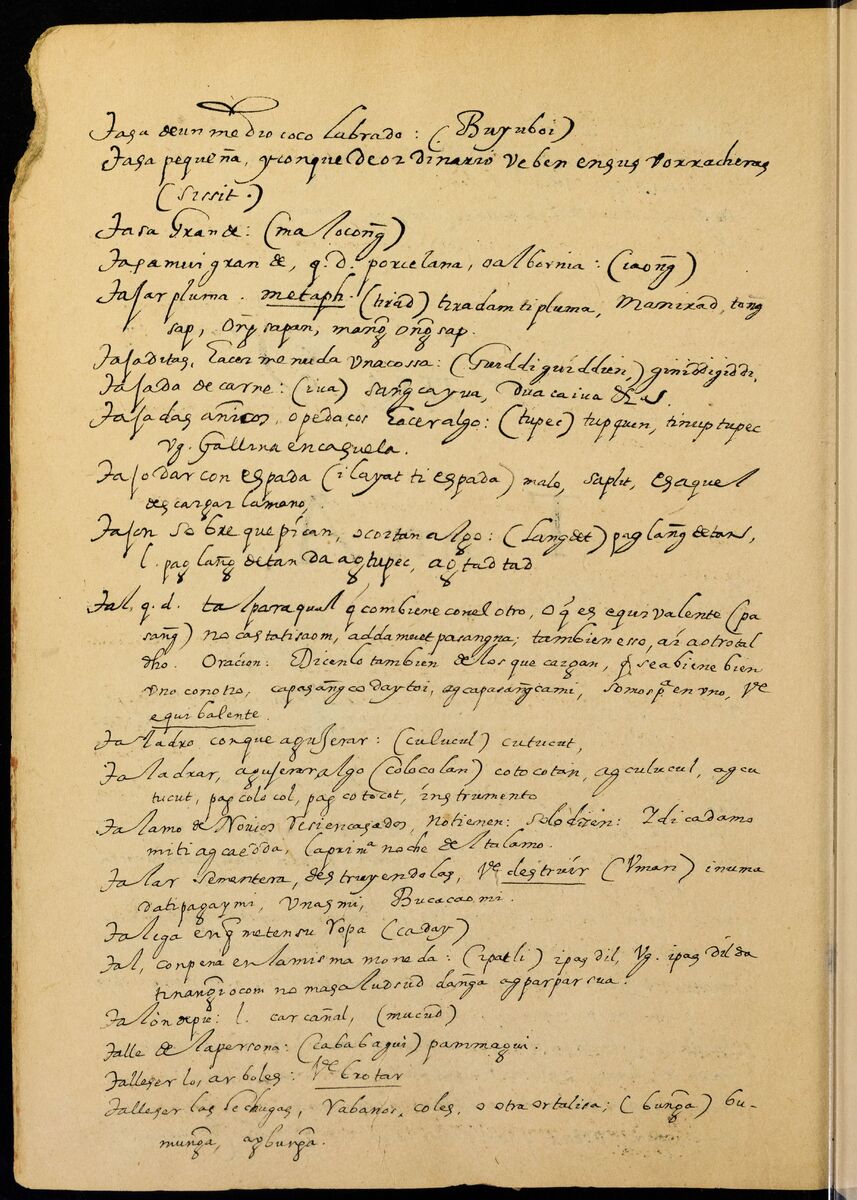 Tasa de un medio coco labrado: (Buyuboi)
Tasa pequeña, y con que de ordinario veben en sus vorracheras
(sissit.)
Tasa Grande: (malocong̃)
Tasa mui grande, q. d. porcelana, o albornia: (iaong̃)
Tajar pluma. metaph. (tirad) tiradam ti pluma, manirad, tong̃
sap, Ong̃ sapan, mang̃ ong̃sap.
Tajaditas, hacer menuda vna cossa: (Guiddi guiddien,) giniddigiddi,
Tajada de carne: (iua) sang̃cayua, dua ca iua &s.
Tajadas añicos, o pedaços hacer algo: (tupec) tupquen, tinuptupec
vg. Gallina en casuela.
Tajo dar con espada (ilayat ti espada) malo, saplit, es aquel
descargar la mano,
Tajon sobre que pican, o cortan algo: (Langdet) paglang̃detans,
l. paglang̃detan da agtupec, agtadtad
Tal, q. d. tal para qual q̃ combiene con el otro, o q̃ es equivalente (pa
sang̃) no castatisaom, adda met pasangna; tambien esso, ái a otro tal
dho. Oracion: Dicenlo tambien de los que cargan, q̃ se abiene bien
vno con otro, capasang̃co daytoi, agcapasang̃cami, somos pª en vno, Vᵉ
equibalente.
Taladro con que agujerar: (culucul) cutucut,
Taladrar, agujerar algo (colocolan) cotocotan, agculucul, agcu
tucut, pagcolocol, pagcotocot, instrumento
Talamo de Novios resiencasados, no tienen: solo dizen: Idi cadamo
miti agcaedda, la primª noche del talamo.
Talar sementera, destruyendolas, Vᵉ destruir (Vmari) inuma
datipagaymi, unasmi, Bucacaomi.
Taliga en q̃ meten su ropa (caday)
Tal, con pena en la misma moneda: (ipatli) ipasdil, vg. ipasdil da
tinang̃iocom no masaludsud dang̃a agparparsua.
Talòn de pie: l. carcañal, (mucud)
Talle de la persona: (cababagui) pammagui.
Talleser los arboles: Vᵉ brotar
Talleser las lechugas, rabanos, coles, o otra ortalisa; (bung̃a) bu-
mung̃a, agbung̃a.